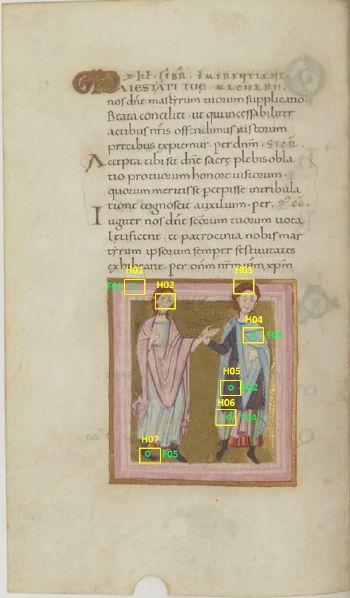 EMERENTIANE
MAIESTATI TUĘ MACHARII.
nos dñe martyrum tuorum supplicatio.
Beata conciliet ut qui incessabiliter
actibus nr̄is offendimus iustorum
precibus expiemur. per dn̄m.
Accepta tibi sit dn̄e sacrę plebis obla
tio pro tuorum honore iustorum.
quorum meritis se percepisse in tribula
tione cognoscit auxilium. per.
Iugiter nos dñe scōrum tuorum uota
letificent. et patrocinia nobis mar
tyrum ipsorum semper festiuitatis
exhibeant. per dn̄m nr̄m ihm xp̄m.
H01
H03
F01
H02
H04
F03
H05
F02
H06
F04
H07
F05